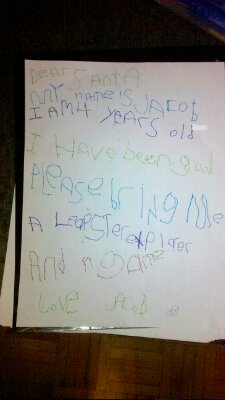 DEAR SANTA
MY NAME IS JACOB
I AM 4 YEARS old
I HAve been good
PLEASE brING Me
A LEAPSTer exPlorer
And A gAMe
LOVE JACOB